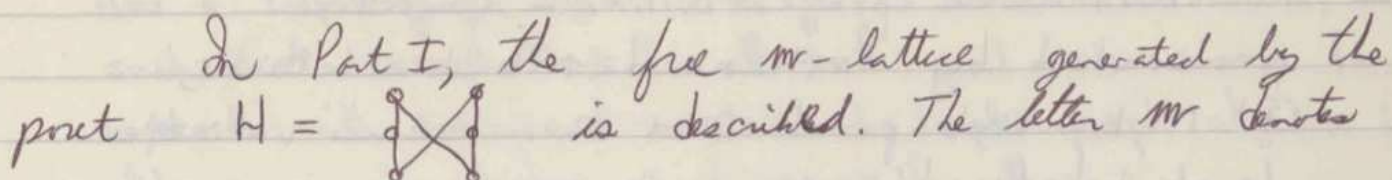 In Part I, the free m-lattice generated by the
poset H = is described. The letter m denotes